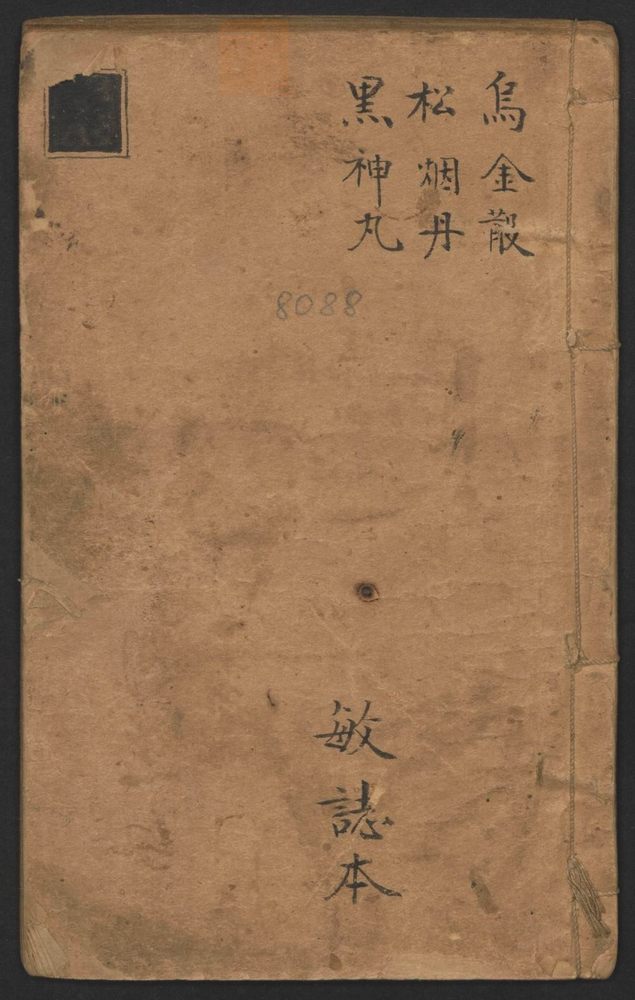 烏金散
松烟丹
黒神丸
8088
敏誌本